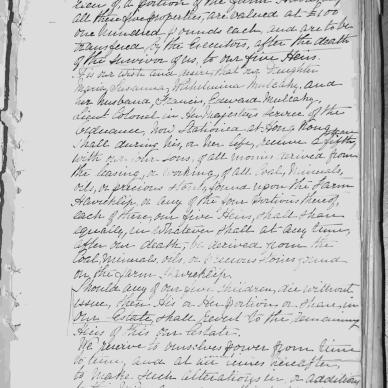 each of a portion of the Farm
all these five properties, are valued at £100
one hundred pounds each and are to be
transferred by the Executors, after the death
of the Survivor of us, to our five Heirs.
It is our wish and desire, that our Daughter
Maria Susanna, Wilhelmina Mulcahy, and
her husband, Francis, Edward Mulcahy,
Lieut Colonel in Her Majesty's Service of the
Ordnance, now Stationed at Hong Kong
shall during his, or her life, receive a fifth share
with our other sons, of all monies derived from
the leasing, or working, of all Coal, Minerals,
oils, or precious stones, found upon the Farm
Haverklip, or any of the four Portions thereof,
each of these, our five Heirs, shall share
equally, in whatever shall at any time,
after our death, be derived from the
Coal, Minerals, oils, or Precious Stones found
on the Farm Haverklip.
Should any of our five children, die without
issue, then His or Her portion or share, in
our Estate, shall revert to the remaining
Heirs of this our Estate.
We reserve to ourselves power from time
to time, and at all times hereafter,
to make such alterations in, or additions